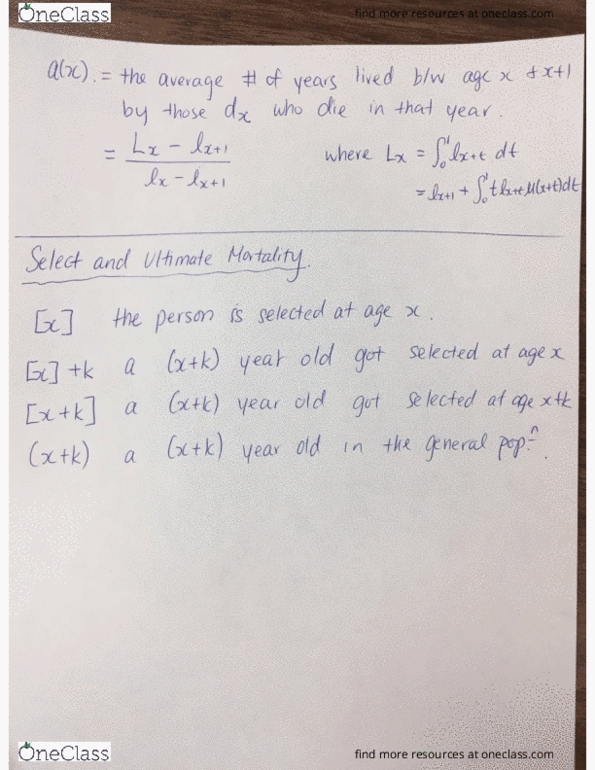 OneClass
find more resources at oneclass.com
a(x). = the average # of years lived b/w age x & x+1
by those dx who die in that year.
= (Lx - lx+1) / (lx - lx+1) where Lx = ∫₀¹ lx+t dt
= lx+1 + ∫₀¹ t lx+t μ(x+t)dt
Select and Ultimate Mortality.
[x] the person is selected at age x.
[x]+k a (x+k) year old got selected at age x
[x+k] a (x+k) year old got selected at age x+k
(x+k) a (x+k) year old in the general popⁿ.
OneClass
find more resources at oneclass.com